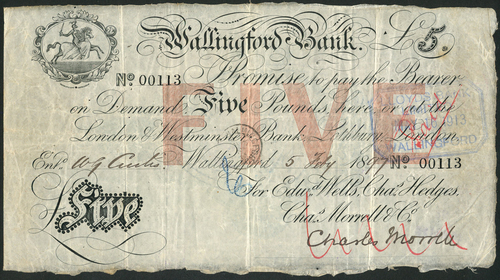 Wallingford Bank. £5.
No 00113 Promise to pay the Bearer
on Demand Five Pounds, here or at the
London & Westminster Bank, Lothbury London
Entd. Wallingford 5 1897 No 00113
FIVE
For Edwd. Wells, Chas. Hedges,
Chas. Morrell & Co.
£Five
Charles Morrell
1913
WALLINGFORD